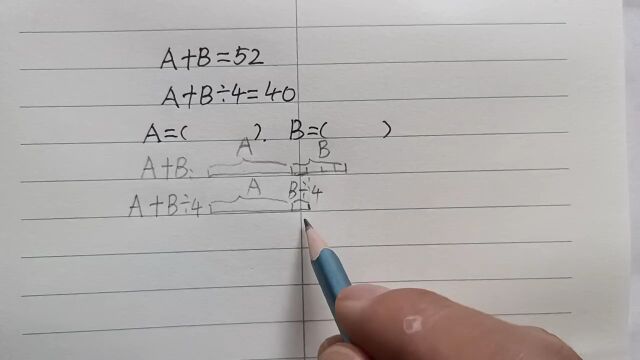 A+B=52
A+B÷4=40
A=( ). B=( )
A B
A+B.
A B÷4
A+B÷4